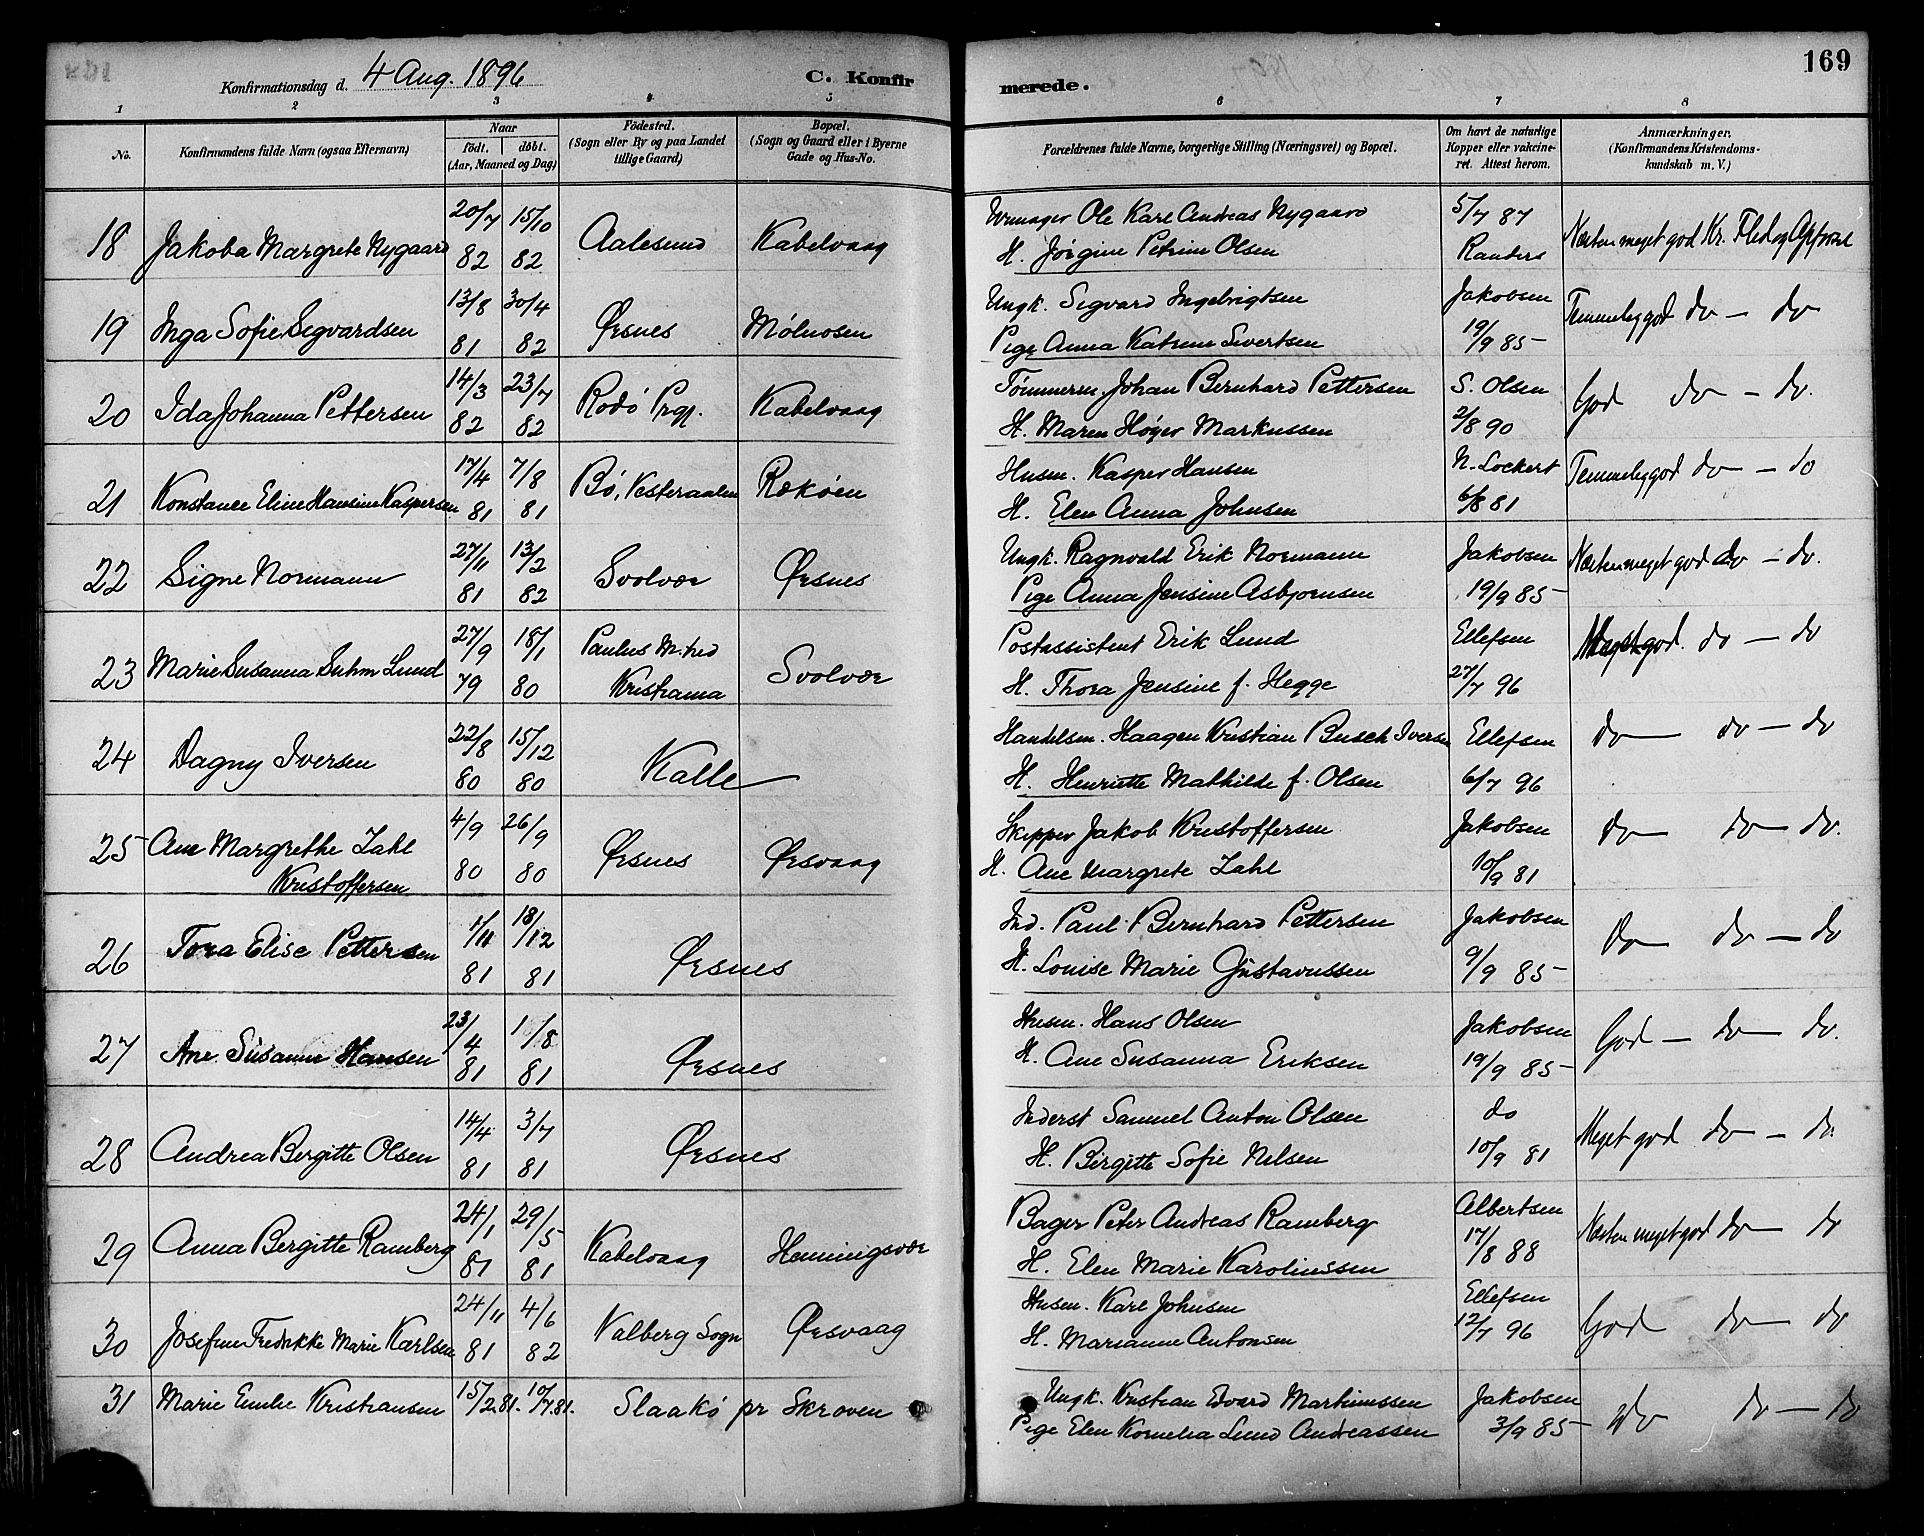 169
Konfirmationsdag d. 4 Aug. 1896
C. Konfirmerede.
1 2 3 4 5 6 7 8
No. Konfirmandens fulde Navn (ogsaa Efternavn) Naar født. døbt. (Aar, Maaned og Dag) Fødested. (Sogn eller By og paa Landet tillige Gaard) Bopæl. (Sogn og Gaard eller i Byerne Gade og Hus-No. Forældrenes fulde Navne, borgerlige Stilling (Næringsvei) og Bopæl. Om havt de naturlige Kopper eller vakcineret. Attest herom. Anmærkninger. (Konfirmandens Kristendomskundskab m. V.)
18 Jakoba Margrete Nygaard 20/7 82 15/10 82 Aalesund Kabelvaag Ole Karl Andreas Nygaard 5/7 87 Næsten meget god Kr. Flid og Opførsel
H. Jørgine Petrine Olsen Randers
19 Inga Sofie Segvardsen 13/8 81 30/4 82 Ørsnes Mølnosen Ungk. Segvard Ingebrigtsen Jakobsen Temmelig god do - do
Pige Anna Katrine Sivertsen 19/9 85
20 Ida Johanna Pettersen 14/3 82 23/7 82 Rødø Prgj. Kabelvaag Tømmerm. Johan Bernhard Pettersen S. Olsen God do - do.
H. Maren Høyer Markussen 2/8 90
21 Konstance Eline Hansine Kaspersen 17/4 81 7/8 81 Bø, Vesteraalen Rækøen Husm. Kasper Hansen N. Lockert Temmelig god do - do
H. Elen Anna Johnsen 6/8 81
22 Signe Normann 27/11 81 13/2 82 Svolvær Ørsnes Ungk. Ragnvald Erik Normann Jakobsen Næsten meget god do - do.
Pige Anna Jensine Asbjørnsen 19/9 85
23 Marie Susanna Suhm Lund 27/9 79 18/1 80 Paulus M.hed Kristiania Svolvær Postassistent Erik Lund Ellefsen Meget god. do - do
H. Thora Jensine f. Hegge 27/7 96
24 Dagny Iversen 22/8 80 15/12 80 Kalle Handelsm. Haagen Kristian Busch Iversen Ellefsen do do - do
H. Henriette Mathilde f. Olsen 6/7 96
25 Ane Margrethe Zahl Kristoffersen 4/9 80 26/9 80 Ørsnes Ørsvaag Skipper Jakob Kristoffersen Jakobsen do do - do.
H. Ane Margrete Zahl 10/9 81
26 Tora Elise Pettersen 1/11 81 18/12 81 Ørsnes Ind. Paul Bernhard Pettersen Jakobsen Do do - do
H. Louise Marie Gustavussen 9/9 85
27 Ane Susanne Hansen 23/4 81 1/8 81 Ørsnes Husm. Hans Olsen Jakobsen God - do - do.
H. Ane Susanna Eriksen 19/9 85
28 Andrea Bergitte Olsen 14/4 81 3/7 81 Ørsnes Inderst Samuel Anton Olsen do Meget god do - do.
H. Birgitte Sofie Nilsen 10/9 81
29 Anna Bergitte Ramberg 24/1 81 29/5 81 Kabelvaag Henningsvær Bager Peter Andreas Ramberg Albertsen Næsten meget god do do
H. Elen Marie Karolinssen 17/8 88
30 Josefine Fredrikke Marie Karlsen 24/11 81 4/6 82 Valberg Sogn Ørsvaag Husm. Karl Johnsen Ellefsen God do do
H. Marianne Antonsen 12/7 96
31 Marie Emilie Kristiansen 15/2.81. 10/7.81. Slaakø pr Skroven Ungk. Kristian Edvard Martinussen Jakobsen do do - do
Pige Elen Kornelia Lund Andreassen 3/9 85